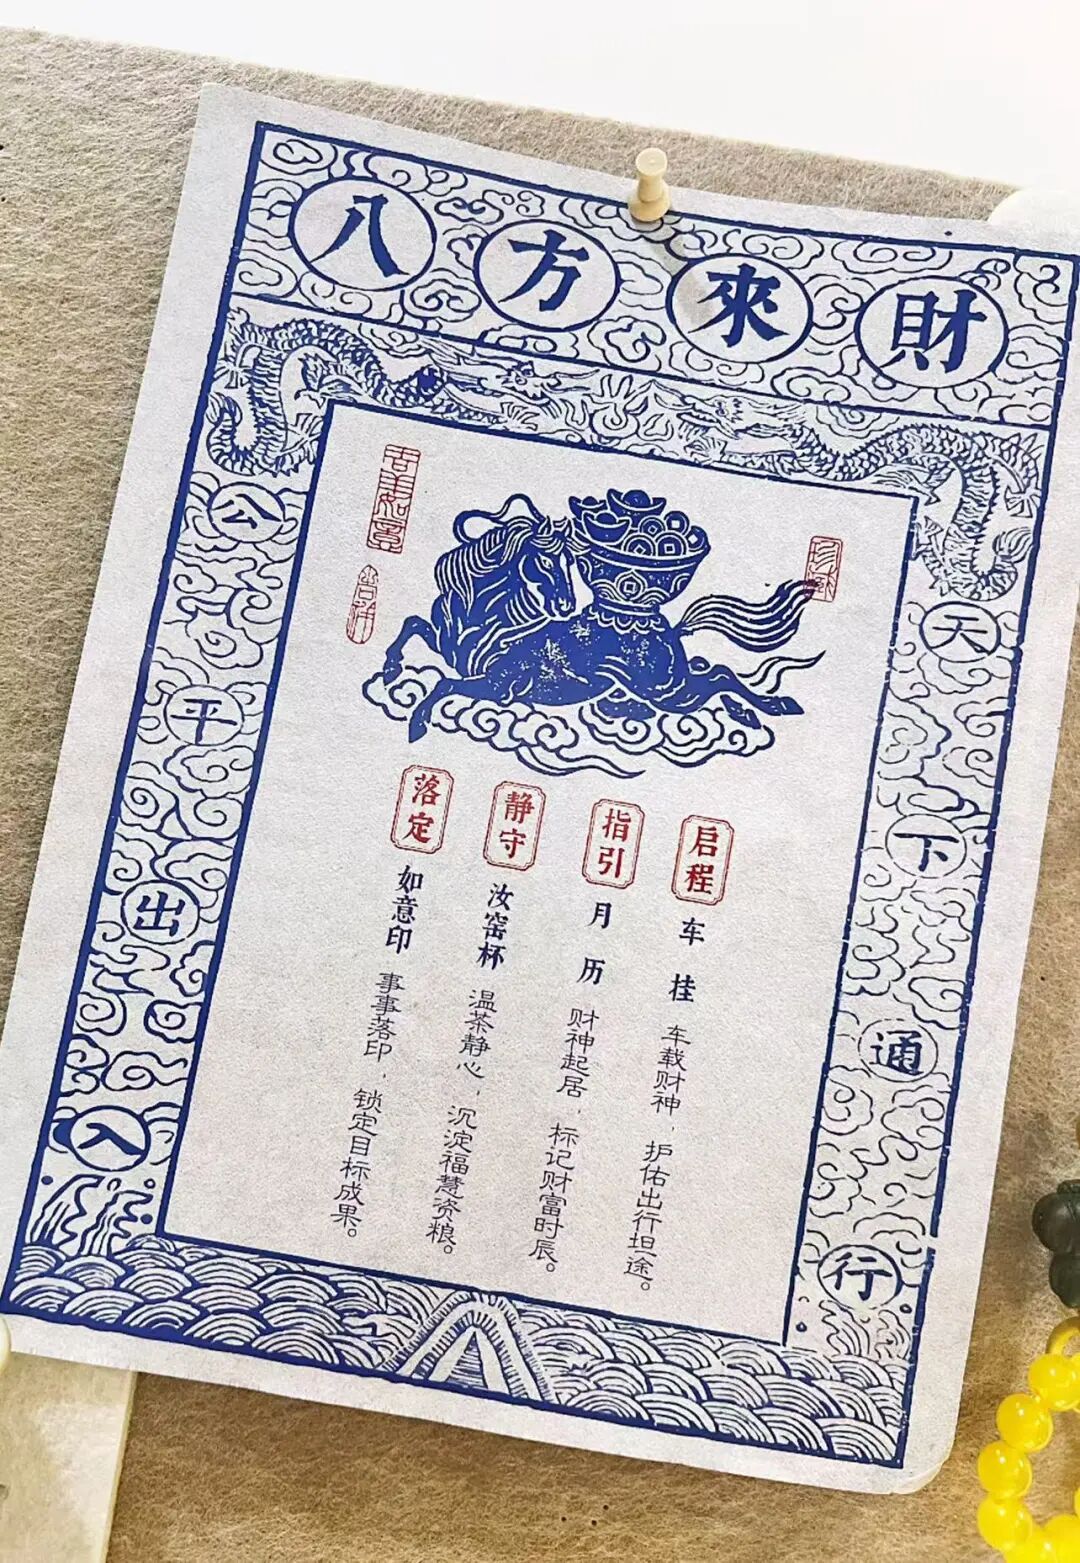 八方來財
天下通行
公平出入
吉羊如意
吉祥
启程
车挂
车载财神，护佑出行坦途。
指引
月历
财神起居，标记财富时辰。
静守
汝窑杯
温茶静心，沉淀福慧资粮。
落定
如意印
事事落印，锁定目标成果。